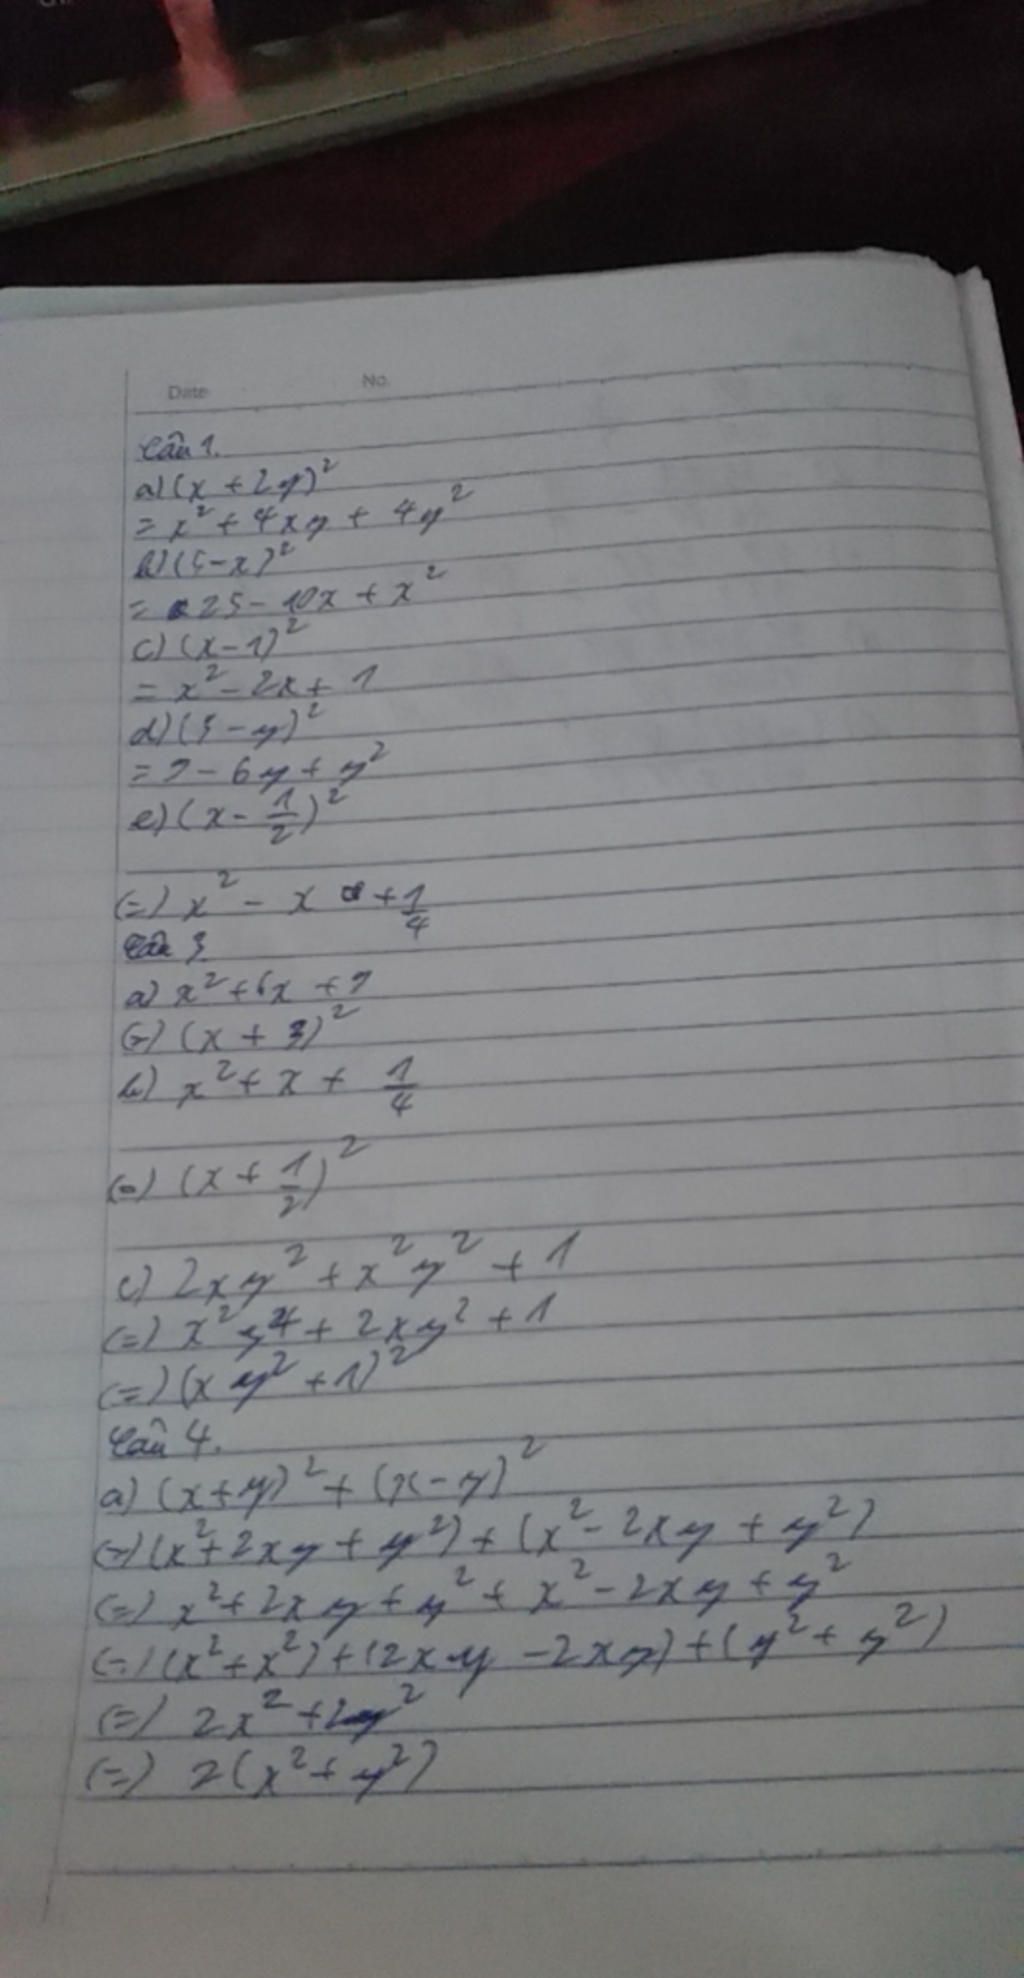 Date No.
Câu 1.
a) (x + 2y)²
= x² + 4xy + 4y²
b) (5-x)²
= 25 - 10x + x²
c) (x-1)²
= x² - 2x + 1
d) (3-y)²
= 9 - 6y + y²
e) (x - 1/2)²
(=) x² - x + 1/4
Câu 3
a) x² + 6x + 9
(=) (x + 3)²
b) x² + x + 1/4
(=) (x + 1/2)²
c) 2xy² + x²y² + 1
(=) x²y⁴ + 2xy² + 1
(=) (xy² + 1)²
Câu 4.
a) (x+y)² + (x-y)²
(=) (x² + 2xy + y²) + (x² - 2xy + y²)
(=) x² + 2xy + y² + x² - 2xy + y²
(=) (x² + x²) + (2xy - 2xy) + (y² + y²)
(=) 2x² + 2y²
(=) 2(x² + y²)